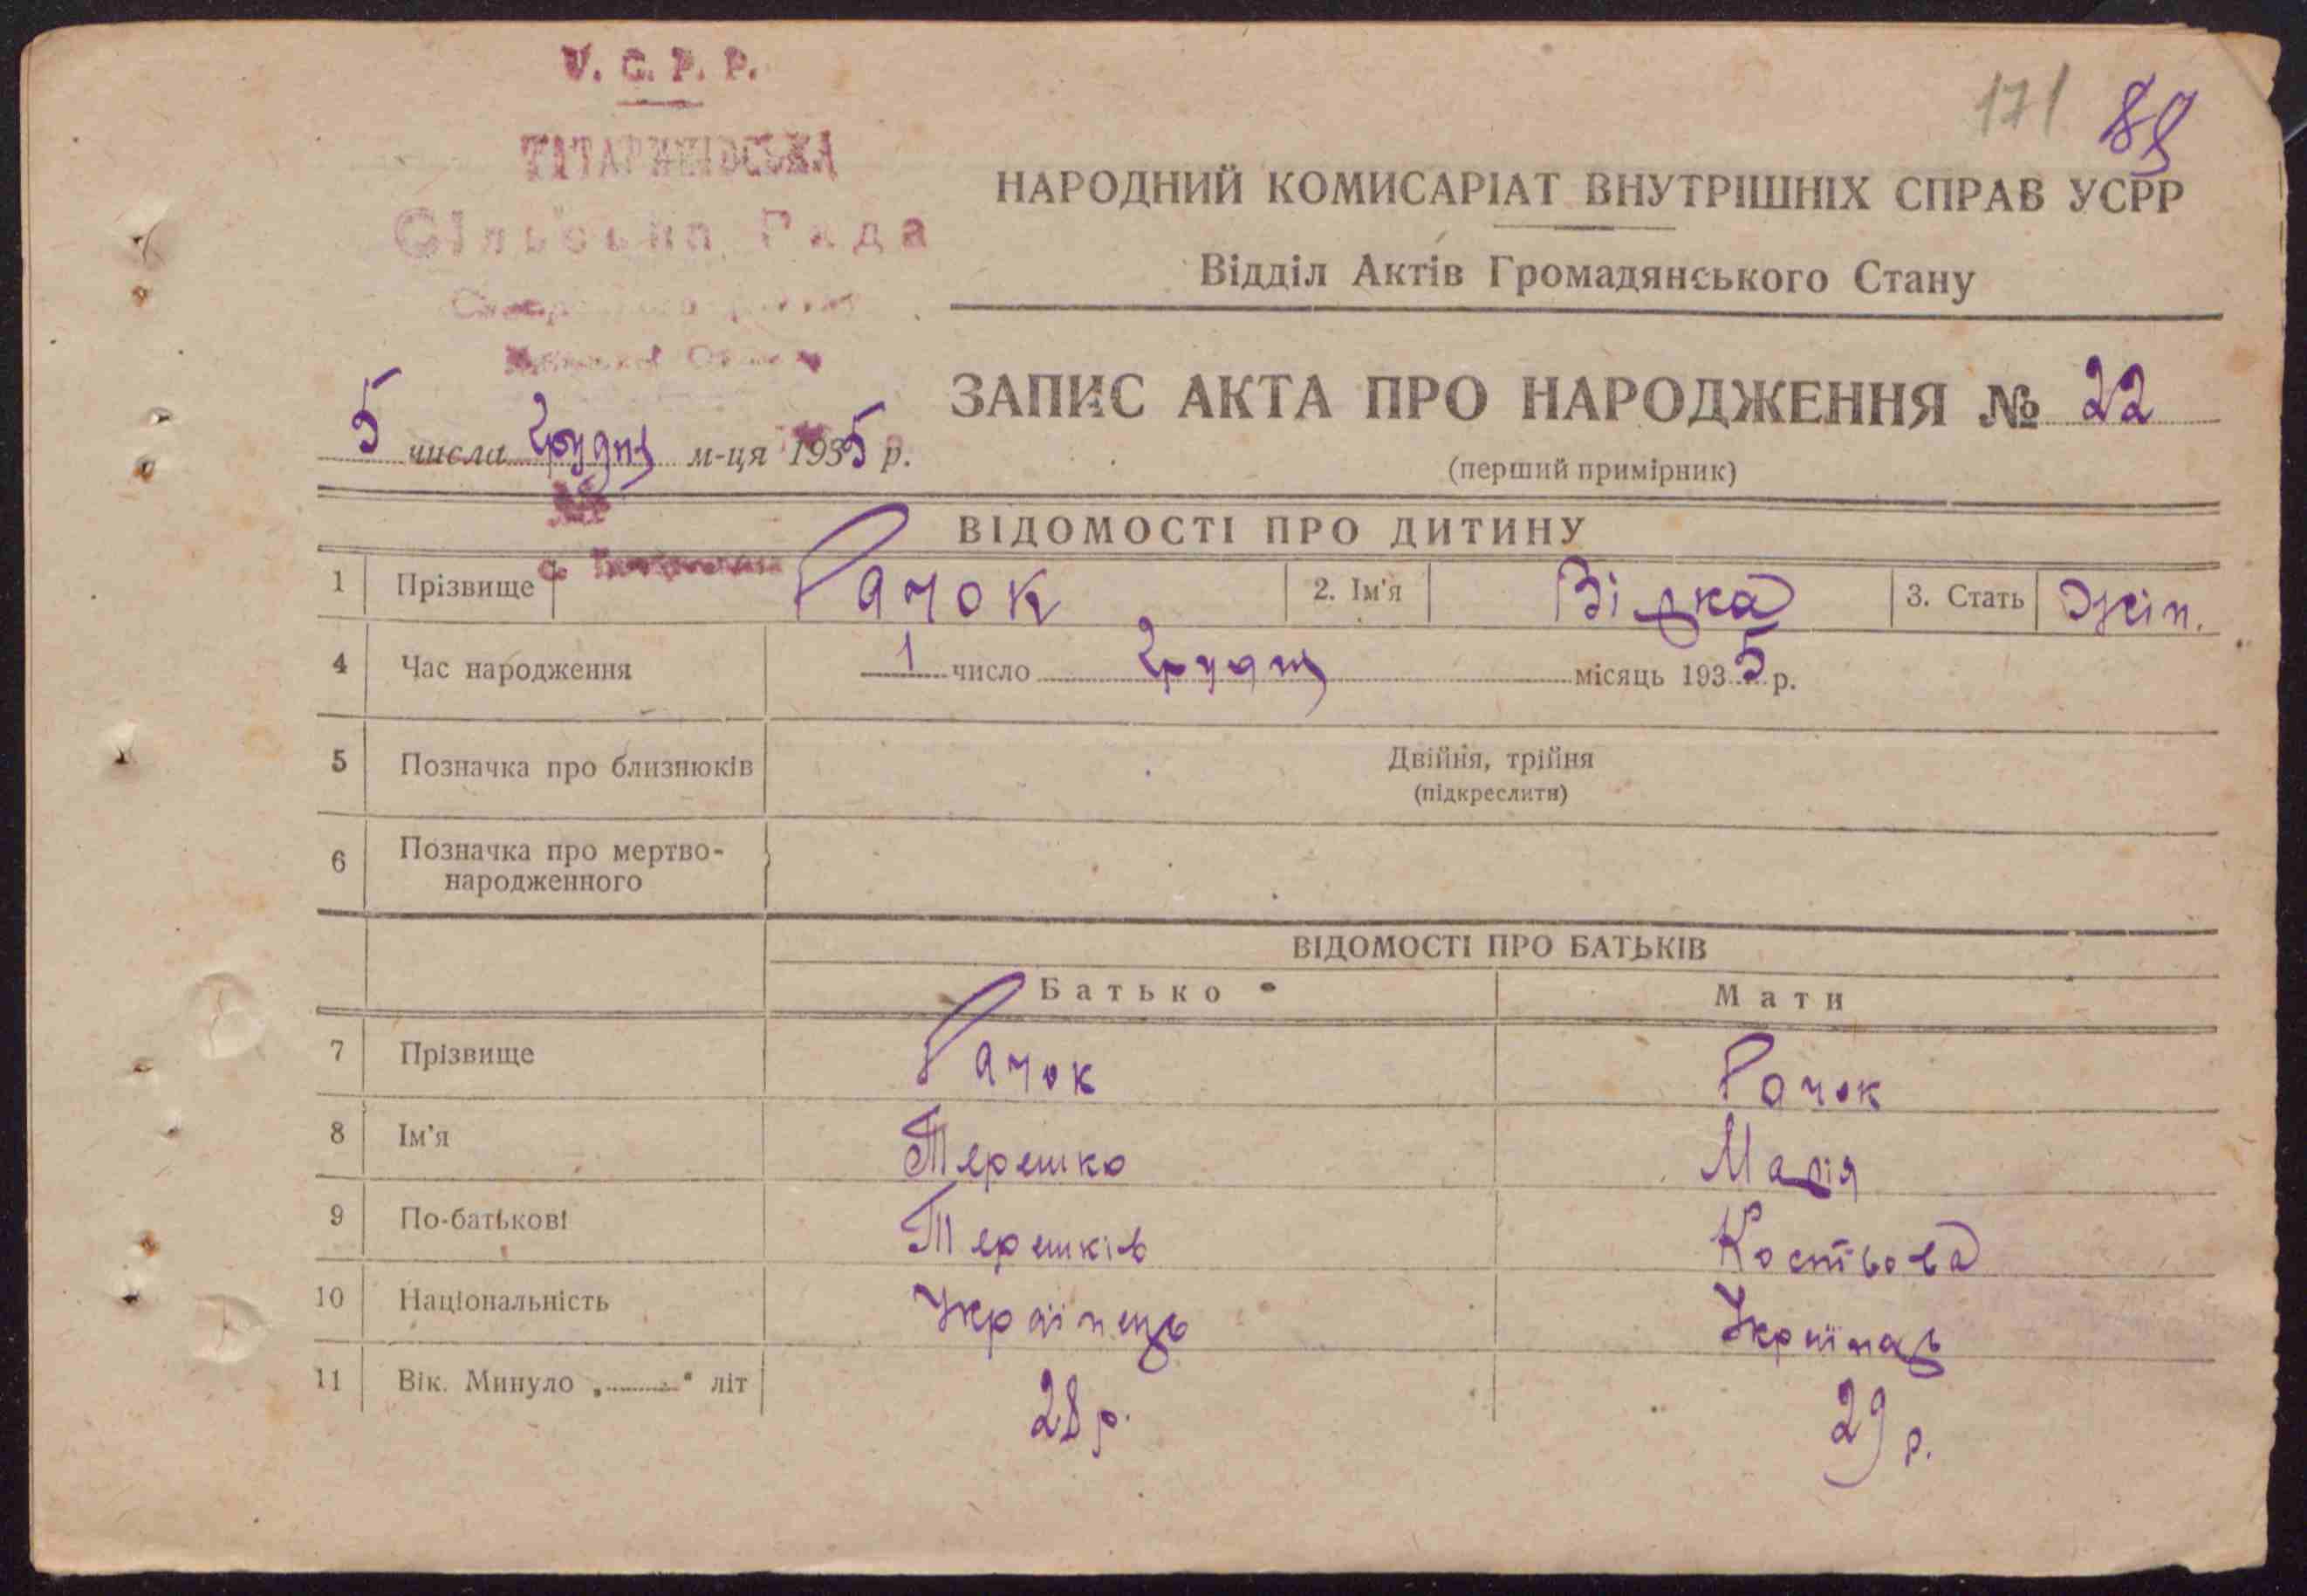 У. С. Р. Р.
ТАТАРИНІВСЬКА
Сільська Рада
171 89
НАРОДНИЙ КОМИСАРІАТ ВНУТРІШНІХ СПРАВ УСРР
Відділ Актів Громадянського Стану
ЗАПИС АКТА ПРО НАРОДЖЕННЯ № 22
5 числа грудня м-ця 1935 р.
(перший примірник)
ВІДОМОСТІ ПРО ДИТИНУ
1 Прізвище Рачок 2. Ім'я Вірка 3. Стать Жін.
4 Час народження 1 число грудня місяць 1935 р.
5 Позначка про близнюків Двійня, трійня
(підкреслити)
6 Позначка про мертво-
народженного
ВІДОМОСТІ ПРО БАТЬКІВ
Батько Мати
7 Прізвище Рачок Рачок
8 Ім'я Терешко Марія
9 По-батькові Терешків Костьова
10 Національність Українець
11 Вік. Минуло „ " літ 28 р. 29 р.